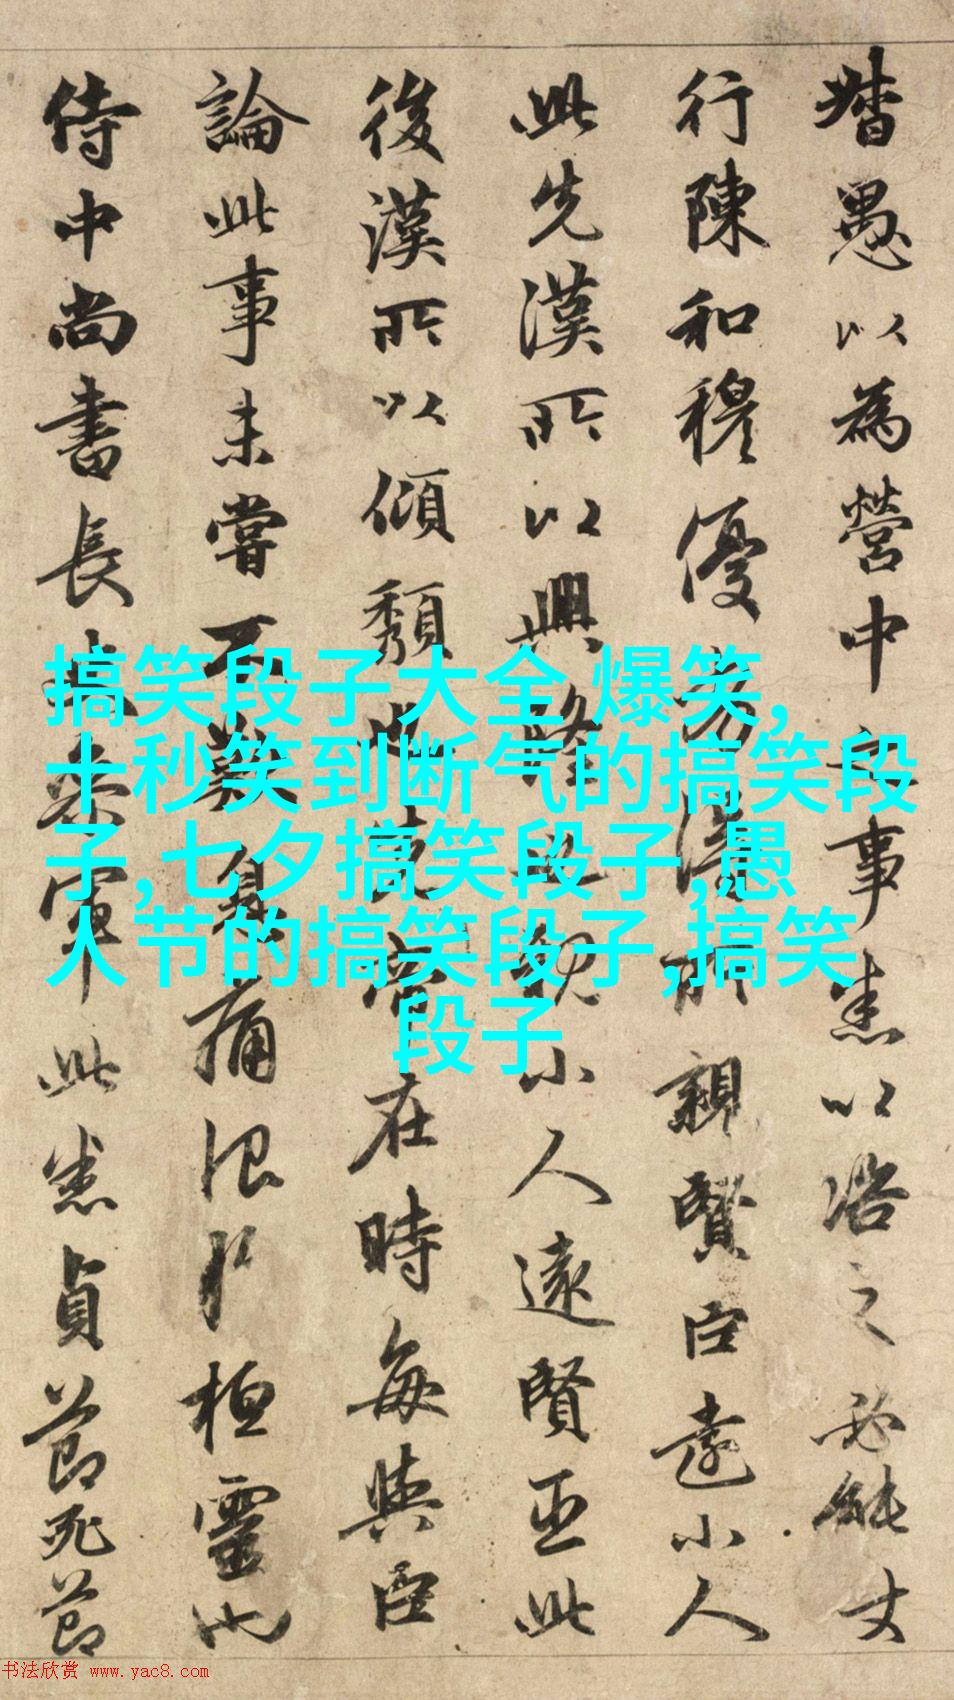 督愚以為營中之事悉以咨之必能丈
行陳和穆優劣得所親賢臣遠小人
此先漢所以興隆也親小人遠賢臣此
後漢所以傾頹也先帝在時每與臣
論此事未嘗不歎息痛恨於桓靈也
侍中尚書長史參軍此悉貞節死節
搞笑段子大全 爆笑,
十秒笑到断气的搞笑段
子,七夕搞笑段子,愚
人节的搞笑段子,搞笑
段子
书法欣赏 www.yac8.com